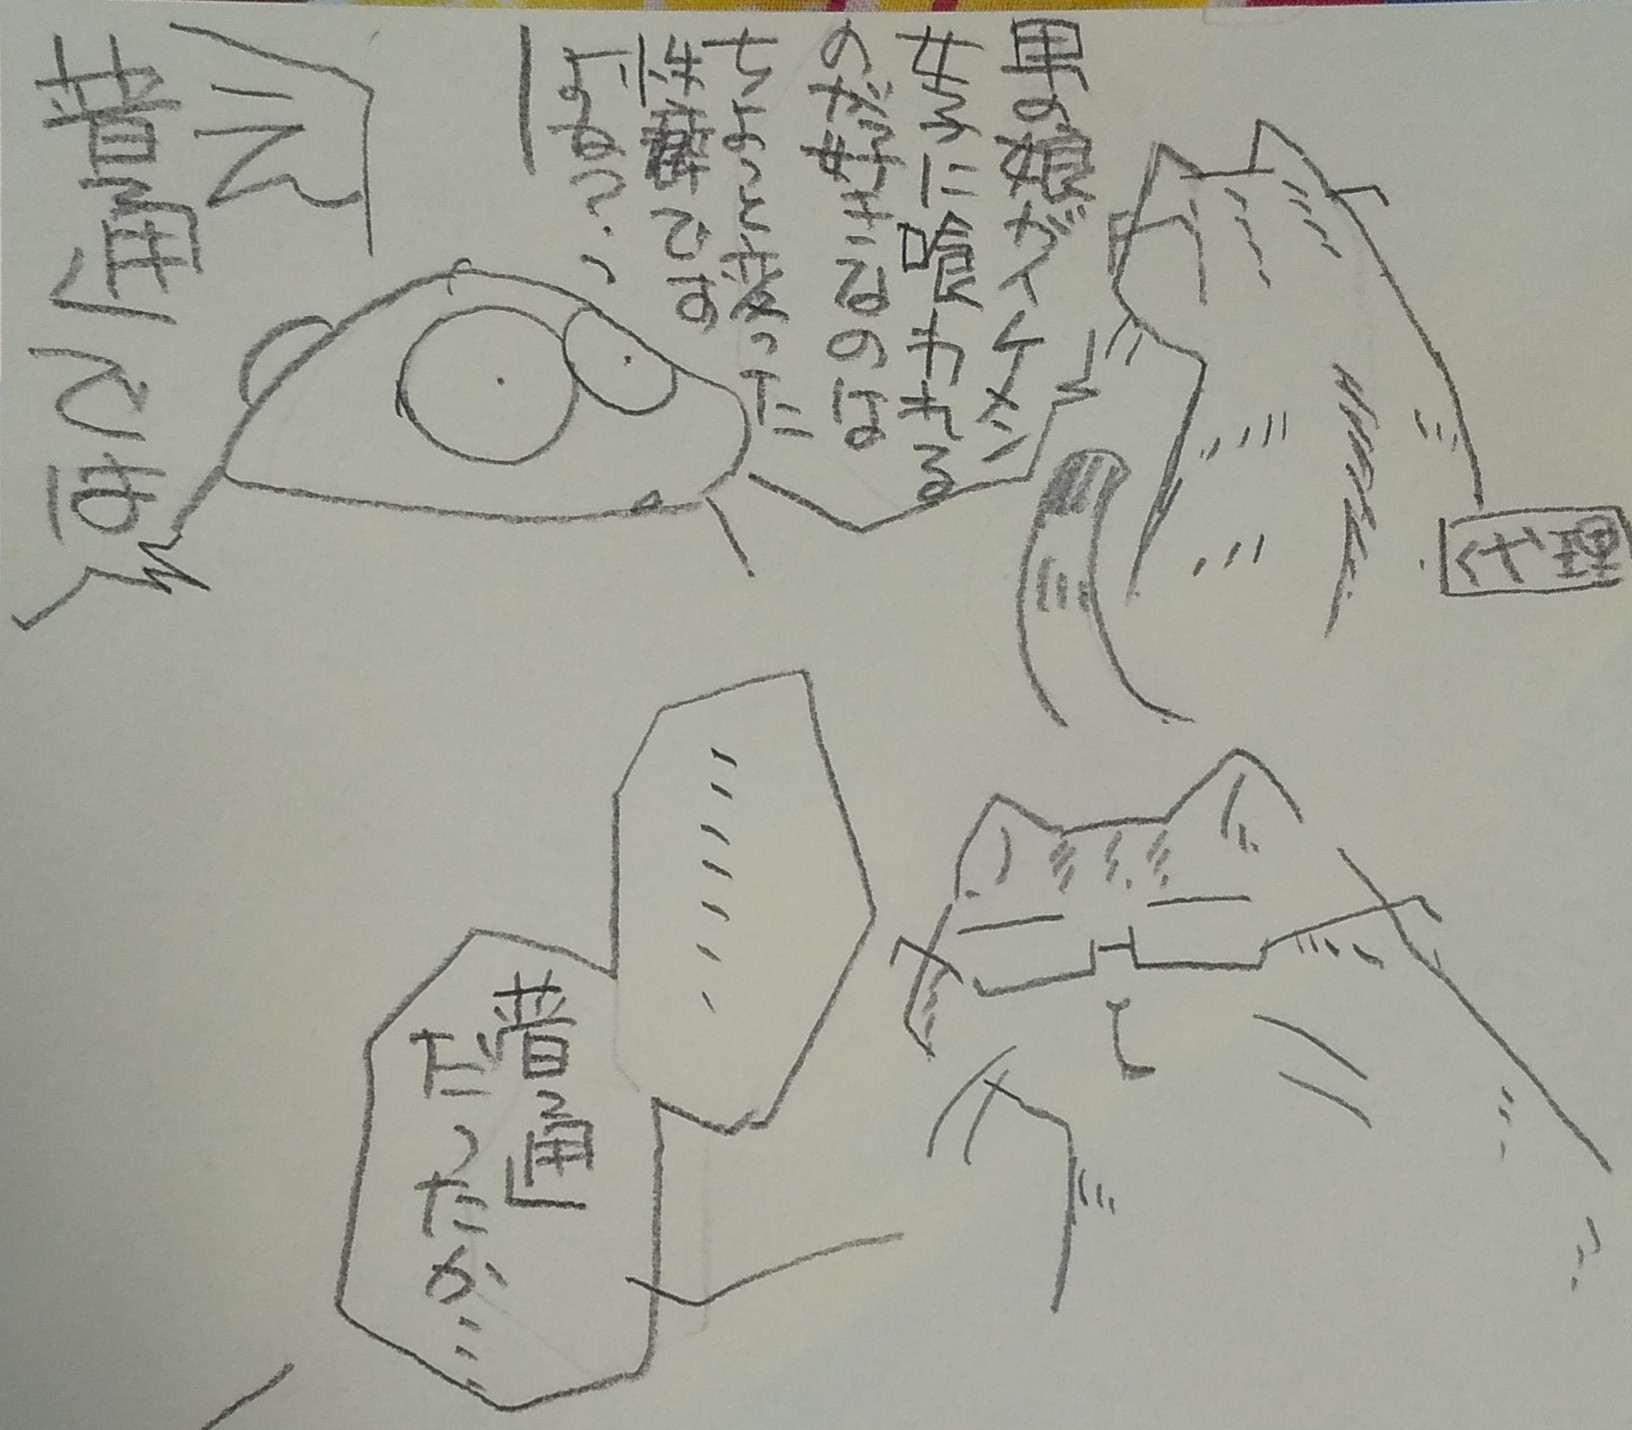 男の娘がイケメン
女子に喰われる
のが好きなのは
ちょっと変った
性癖です
よね？
え
普通では
代理
・・・・・・・
普通
だったか…